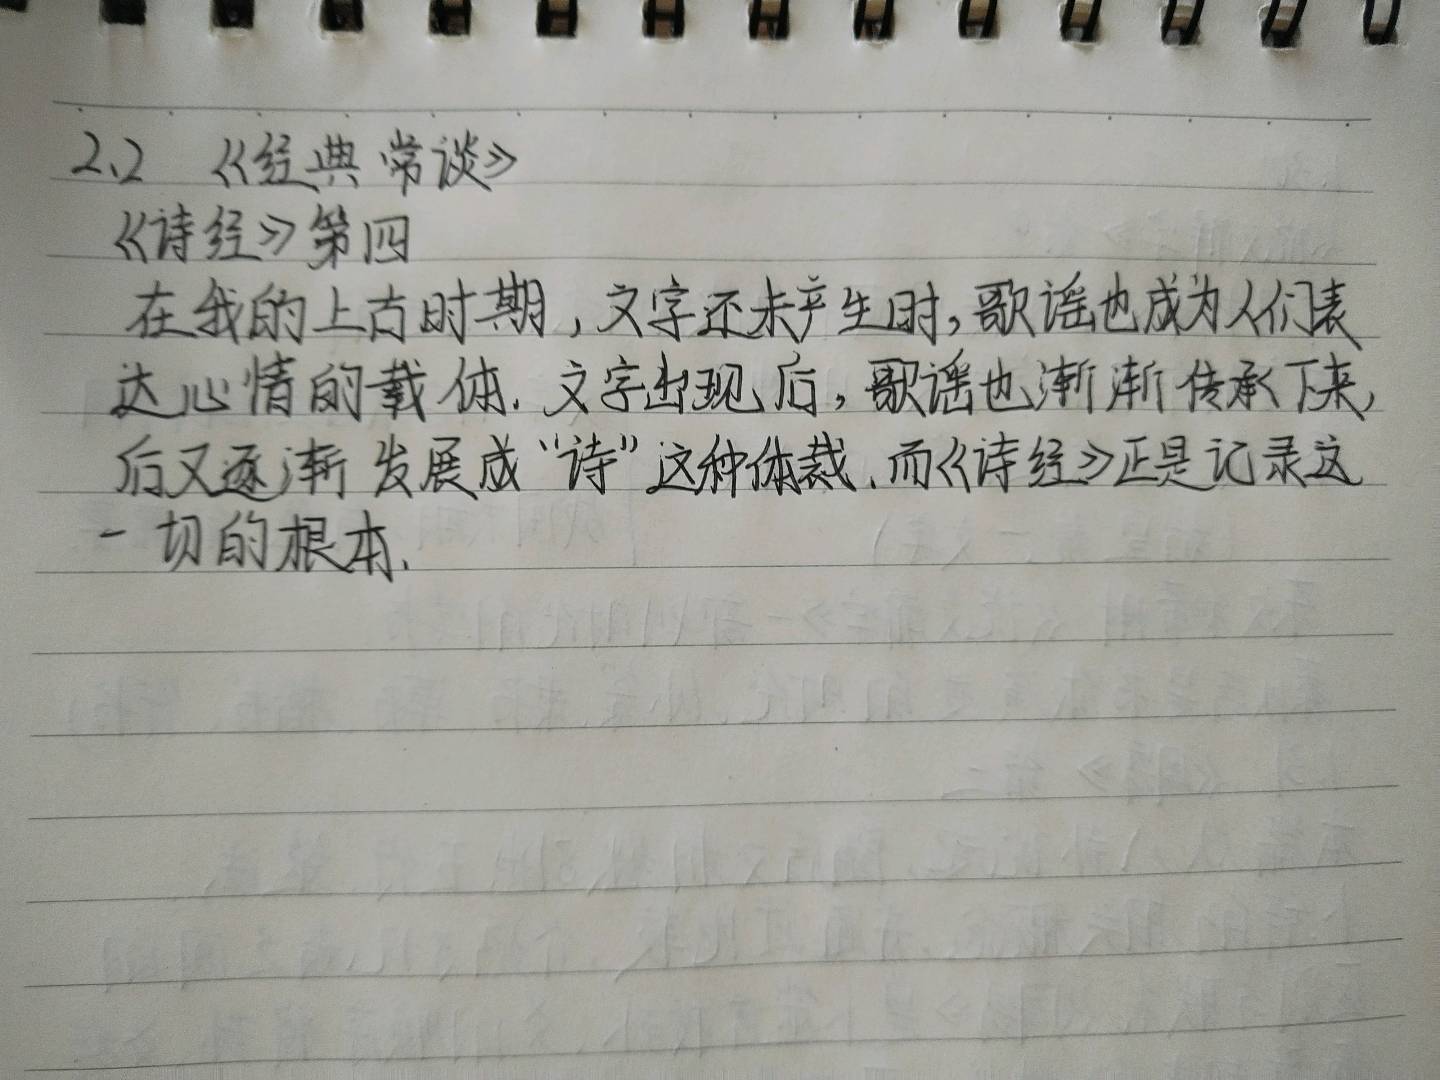 2.2 《经典常谈》
《诗经》第四
在我的上古时期,文字还未产生时,歌谣也成为人们表
达心情的载体.文字出现后,歌谣也渐渐传承下来,
后又逐渐发展成“诗”这种体裁.而《诗经》正是记录这
一切的根本.